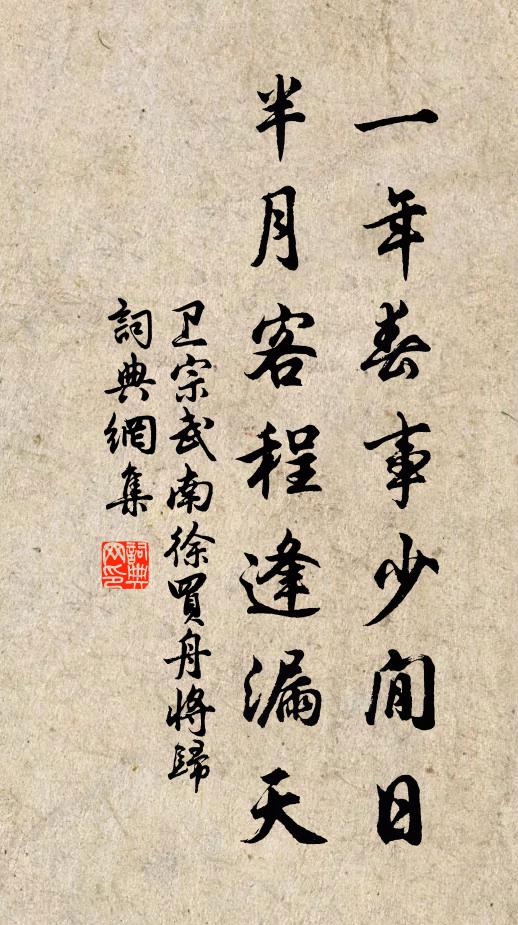 一年春事少閒日
半月客程逢漏天
卫宗武南徐買舟將歸
詞典網集
詞典
网印